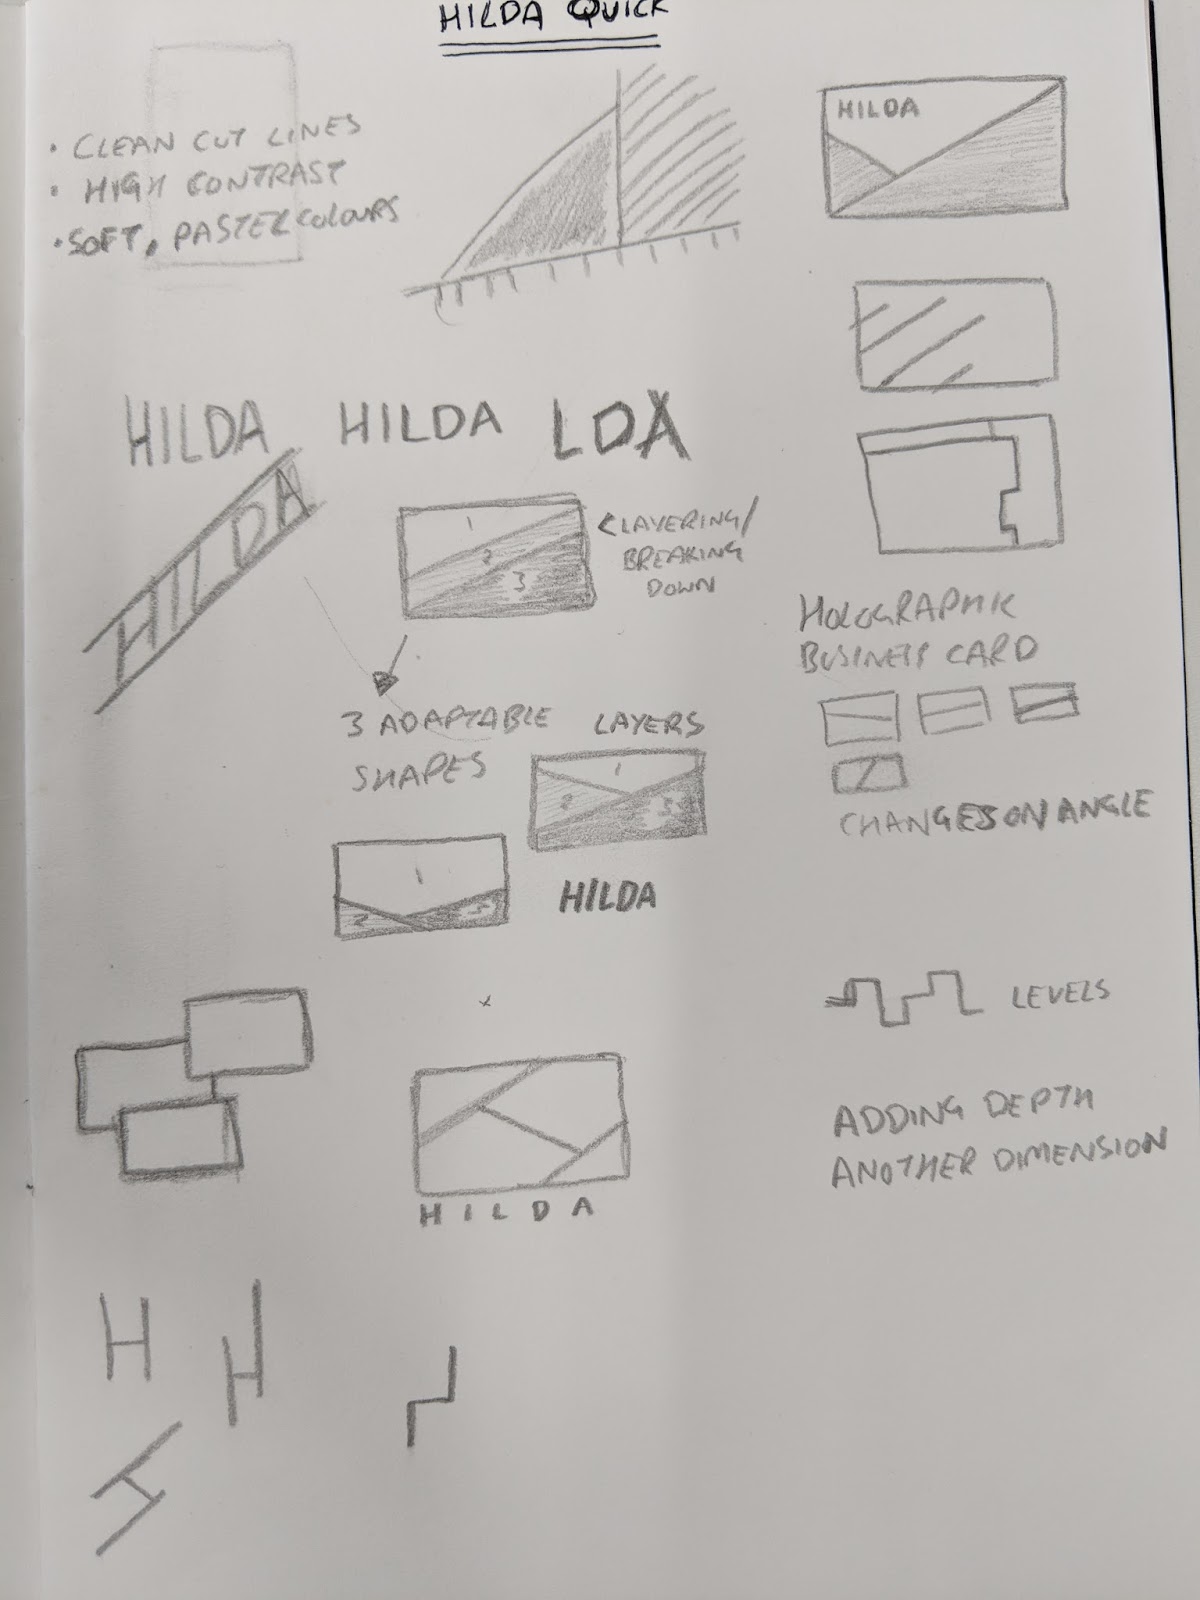 HILDA QUICK
• CLEAN CUT LINES
• HIGH CONTRAST
• SOFT, PASTEL COLOURS
HILDA
HILDA HILDA LDA
HILDA
1
2
3
< LAYERING/
BREAKING
DOWN
HOLOGRAPHIC
BUSINESS CARD
3 ADAPTABLE LAYERS
SHAPES
1
2 3
CHANGES ON ANGLE
1
2 3
HILDA
LEVELS
ADDING DEPTH
ANOTHER DIMENSION
HILDA
H H
H